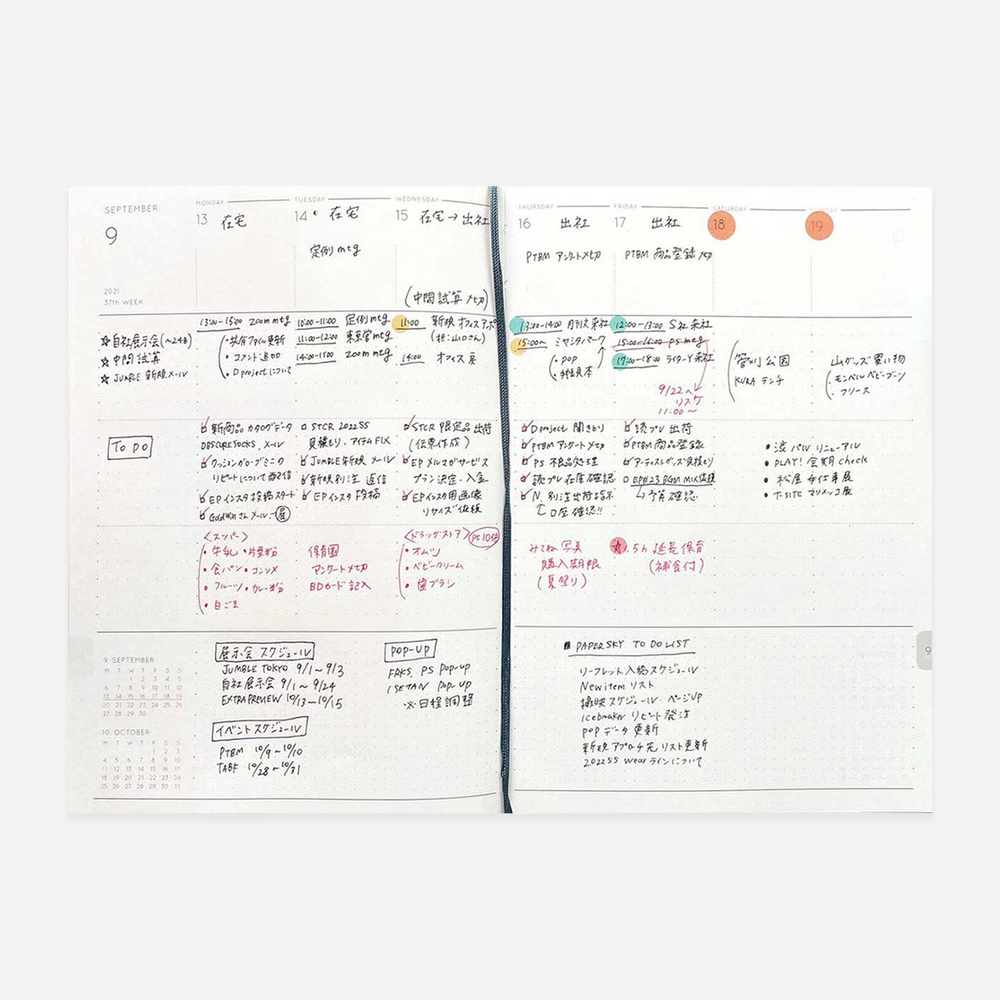 SEPTEMBER
9
2021
37th WEEK
MONDAY
13 在宅
TUESDAY
14 在宅
定例 mtg
WEDNESDAY
15 在宅→出社
(中間試算 〆切)
THURSDAY
16 出社
PTBM アンケート〆切
FRIDAY
17 出社
PTBM 商品登録 〆切
SATURDAY
18
19
☆自社展示会(~24日)
☆中間試算
☆JUMBLE 新規メール
13:00-15:00 zoom mtg
・共有ファイル更新
・コメント追加
・D projectについて
10:00-11:00 定例mtg
11:00-12:00 東京営mtg
14:00-15:00 zoom mtg
11:00 新規オフィスアポ
(担:山口さん)
14:00 オフィス戻
13:00-14:00 月刊大来社
15:00~ ミヤシタパーク
・POP
・見本
12:00-13:00 S社来社
15:00-16:00 PS mtg
17:00-18:00 ライターY来社
9/22へ
リスケ
11:00~
菅刈公園
KURA ランチ
山グッズ買い物
・モンベル ベビーブーツ
・フリース
To Do
新商品カタログデータ
OBSCURE SOCKS. メール
クッシンガロ・ブミニク
リピートについて返信
EPインスタ投稿スタート
Goldwinさんメール
STCR 2022SS
見積もり、アイテムFIX
JUMBLE新規メール
新規別注 返信
EPインスタ投稿
STCR 限定品 出荷
(伝票作成)
EPメルマガサービス
プラン決定・入金
EPインスタ用画像
リサイズ依頼
D project 聞きとり
PTBM アンケート〆切
PS 不良品処理
読プレ在庫確認
N. 別注出荷指示
口座確認!!
読プレ 出荷
PTBM商品登録
アーティストグッズ見積もり
EP#23 BGM MIX依頼
予算確認
・渋パル リニューアル
・PLAY! 会期 check
・松屋 手仕事展
・T-SITE マリメッコ展
<スーパー>
・牛乳 ・片栗粉
・食パン ・コンソメ
・フルーツ ・カレー粉
・白ごま
保育園
アンケート〆切
BDカード記入
<ドラッグストア> pt 10倍
・オムツ
・ベビークリーム
・歯ブラシ
みてね写真
購入期限
(夏祭り)
★1.5h 延長保育
(補食付)
9 SEPTEMBER
M T W T F S S
1 2 3 4 5
6 7 8 9 10 11 12
13 14 15 16 17 18 19
20 21 22 23 24 25 26
27 28 29 30
10 OCTOBER
M T W T F S S
1 2 3
4 5 6 7 8 9 10
11 12 13 14 15 16 17
18 19 20 21 22 23 24
25 26 27 28 29 30 31
展示会スケジュール
JUMBLE TOKYO 9/1~9/3
自社展示会 9/1~9/24
EXTRAPREVIEW 10/13~10/15
イベントスケジュール
PTBM 10/9~10/10
TABF 10/28~10/31
POP-UP
FRKS PS POP-UP
ISETAN POP-UP
※日程調整
PAPERSKY TO DO LIST
リーフレット入稿スケジュール
New item リスト
撮影スケジュール ページUP
icebreaker リピート発注
POP データ更新
新規アプローチ先 リスト更新
2022SS Wear ラインについて
9